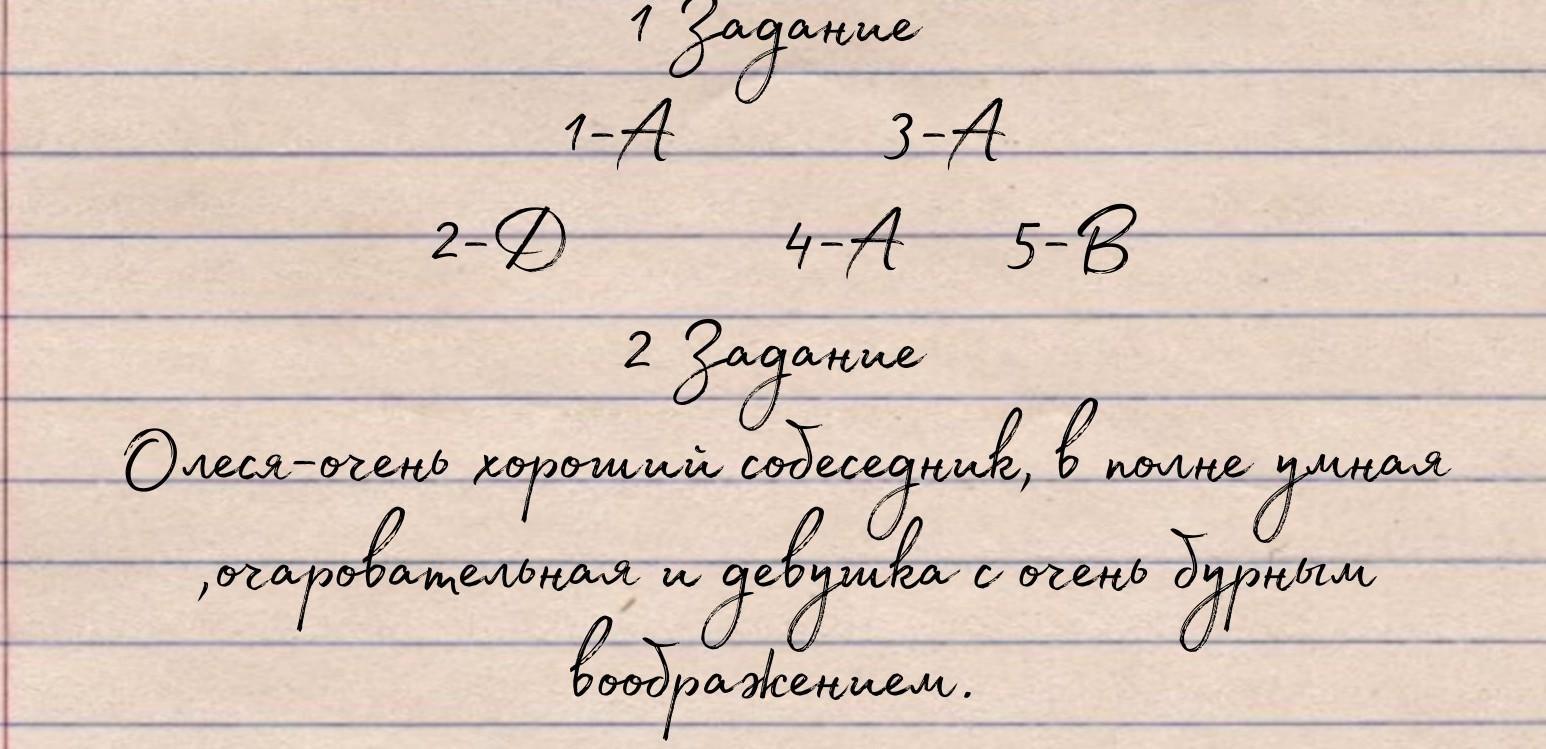 1 Задание
1-A 3-A
2-D 4-A 5-B
2 Задание
Олеся-очень хороший собеседник, в полне умная
,очаровательная и девушка с очень бурным
воображением.